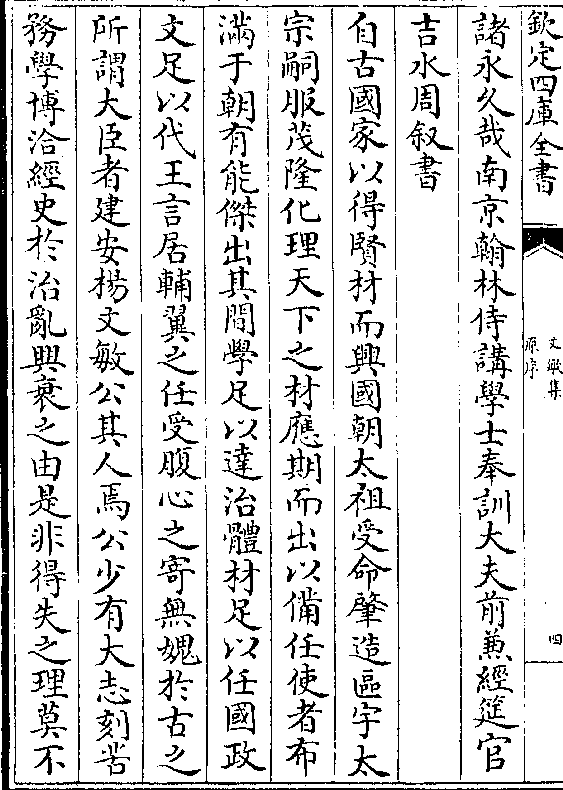 欽定四庫全書
文敏集
原序
四
諸永久哉南京翰林侍講學士奉訓大夫前兼經筵官
吉水周叙書
自古國家以得賢材而興國朝太祖受命肇造區宇太
宗嗣服茂隆化理天下之材應期而出以備任使者布
滿于朝有能傑出其間學足以達治體材足以任國政
文足以代王言居輔翼之任受腹心之寄無媿於古之
所謂大臣者建安楊文敏公其人焉公少有大志刻苦
務學博洽經史於治亂興衰之由是非得失之理莫不